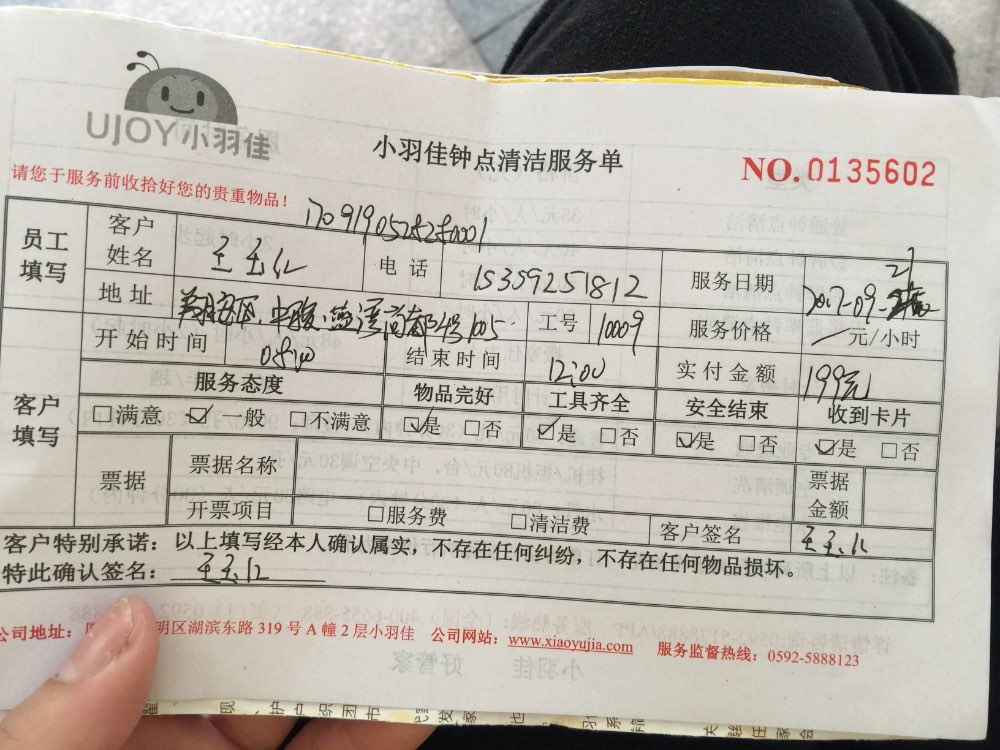 UJOY小羽佳
小羽佳钟点清洁服务单
NO.0135602
请您于服务前收拾好您的贵重物品!
员工填写 客户姓名 王玉仁 电话 15359251812 服务日期 2017-09-21
地址 中骏·蓝湾尚都 1005 工号 10009 服务价格 元/小时
开始时间 结束时间 12:00 实付金额 199元
客户填写 服务态度 物品完好 工具齐全 安全结束 收到卡片
□满意 ☑一般 □不满意 ☑是 □否 ☑是 □否 ☑是 □否 ☑是 □否
票据 票据名称 票据金额
开票项目 □服务费 □清洁费 客户签名 王玉仁
客户特别承诺:以上填写经本人确认属实,不存在任何纠纷,不存在任何物品损坏。
特此确认签名: 王玉仁
公司地址: 明区湖滨东路 319 号 A 幢 2 层小羽佳 公司网站:www.xiaoyujia.com 服务监督热线:0592-5888123